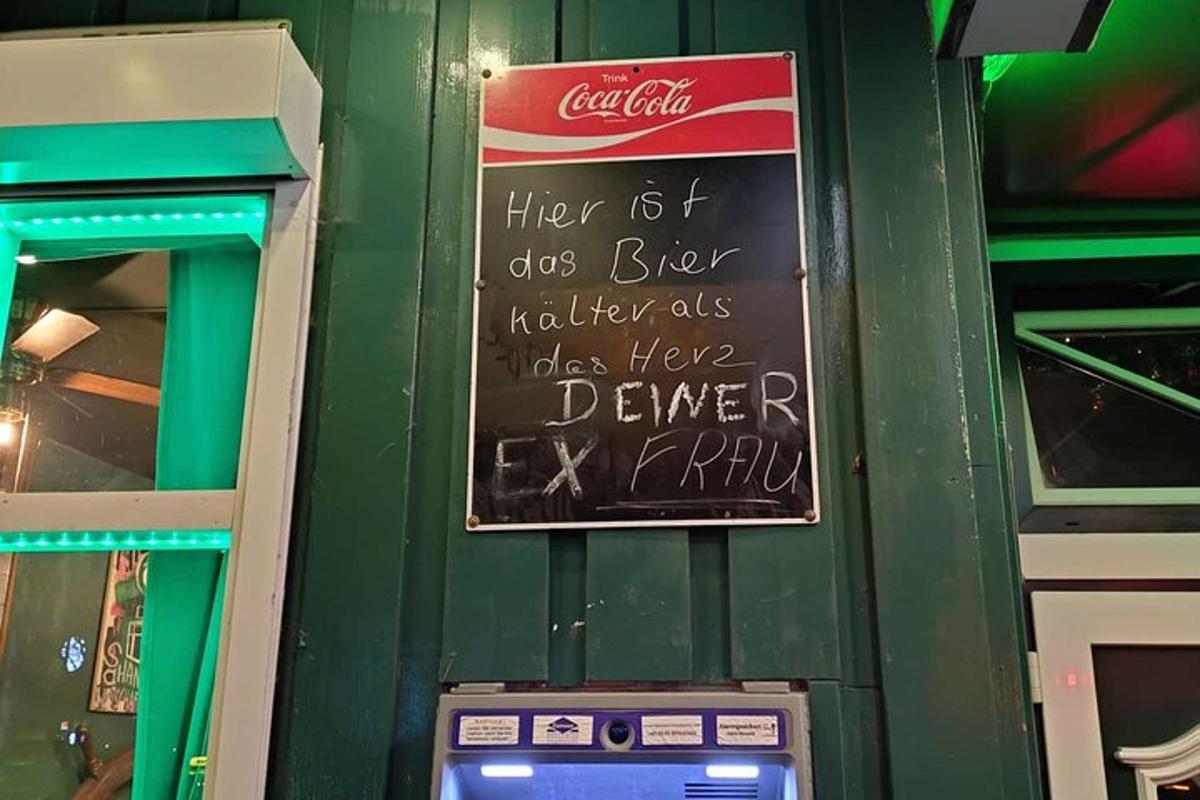 Trink
Coca-Cola
Hier ist
das Bier
kälter als
das Herz
DEINER
EX FRAU